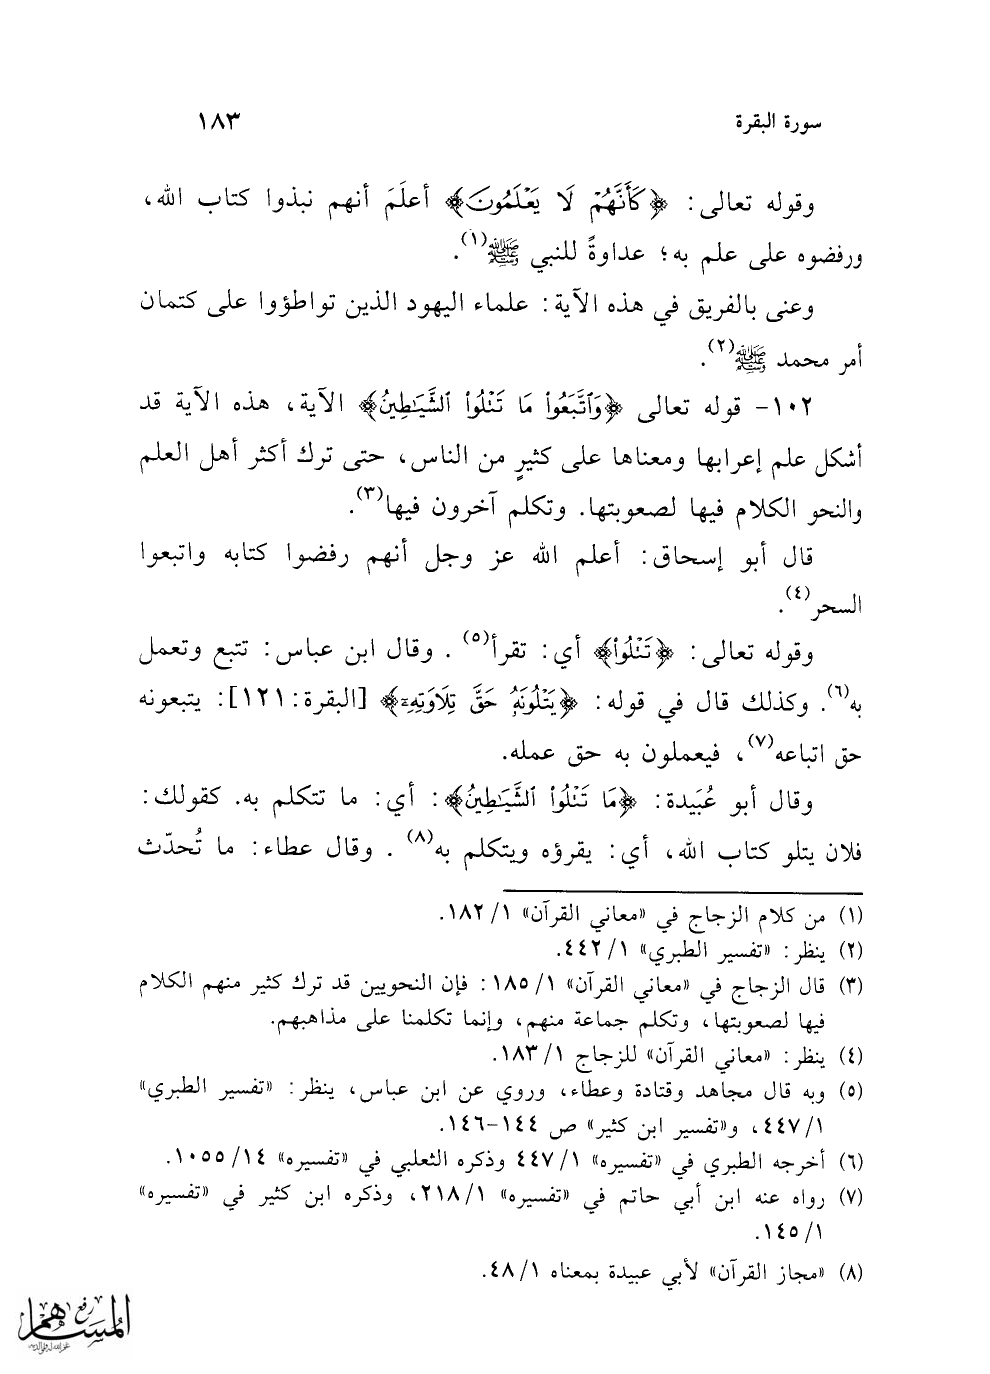 سورة البقرة ١٨٣
وقوله تعالى: ﴿كَأَنَّهُمْ لَا يَعْلَمُونَ﴾ أعلَمَ أنهم نبذوا كتاب الله،
ورفضوه على علم به؛ عداوةً للنبي ﷺ(١).
وعنى بالفريق في هذه الآية: علماء اليهود الذين تواطؤوا على كتمان
أمر محمد ﷺ(٢).
١٠٢- قوله تعالى ﴿وَٱتَّبَعُوا۟ مَا تَتْلُوا۟ ٱلشَّيَٰطِينُ﴾ الآية، هذه الآية قد
أشكل علم إعرابها ومعناها على كثيرٍ من الناس، حتى ترك أكثر أهل العلم
والنحو الكلام فيها لصعوبتها. وتكلم آخرون فيها(٣).
قال أبو إسحاق: أعلم الله عز وجل أنهم رفضوا كتابه واتبعوا
السحر(٤).
وقوله تعالى: ﴿تَتْلُوا۟﴾ أي: تقرأ(٥) . وقال ابن عباس: تتبع وتعمل
به(٦). وكذلك قال في قوله: ﴿يَتْلُونَهُۥ حَقَّ تِلَاوَتِهِۦٓ﴾ [البقرة: ١٢١]: يتبعونه
حق اتباعه(٧)، فيعملون به حق عمله.
وقال أبو عُبَيدة: ﴿مَا تَتْلُوا۟ ٱلشَّيَٰطِينُ﴾: أي: ما تتكلم به. كقولك:
فلان يتلو كتاب الله، أي: يقرؤه ويتكلم به(٨) . وقال عطاء: ما تُحدّث
(١) من كلام الزجاج في «معاني القرآن» ١/ ١٨٢.
(٢) ينظر: «تفسير الطبري» ١/ ٤٤٢.
(٣) قال الزجاج في «معاني القرآن» ١/ ١٨٥: فإن النحويين قد ترك كثير منهم الكلام
فيها لصعوبتها، وتكلم جماعة منهم، وإنما تكلمنا على مذاهبهم.
(٤) ينظر: «معاني القرآن» للزجاج ١/ ١٨٣.
(٥) وبه قال مجاهد وقتادة وعطاء، وروي عن ابن عباس، ينظر: «تفسير الطبري»
١/ ٤٤٧، و«تفسير ابن كثير» ص ١٤٤-١٤٦.
(٦) أخرجه الطبري في «تفسيره» ١/ ٤٤٧ وذكره الثعلبي في «تفسيره» ١٤/ ١٠٥٥.
(٧) رواه عنه ابن أبي حاتم في «تفسيره» ١/ ٢١٨، وذكره ابن كثير في «تفسيره»
١/ ١٤٥.
(٨) «مجاز القرآن» لأبي عبيدة بمعناه ١/ ٤٨.
رفع
المساهم